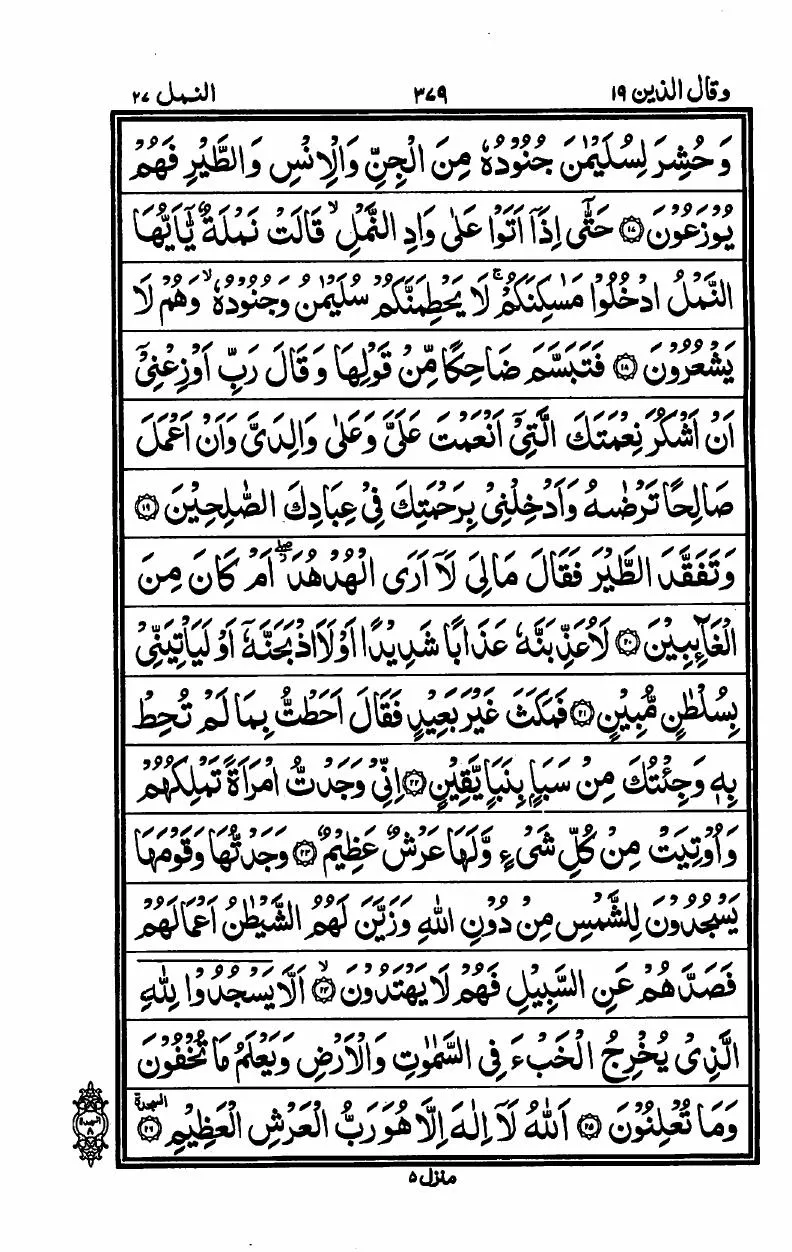 وقال الذين ١٩ ٣٧٩ النمل ٢٧
وَ حُشِرَ لِسُلَيْمٰنَ جُنُوْدُهٗ مِنَ الْجِنِّ وَالْاِنْسِ وَالطَّيْرِ فَهُمْ
يُوْزَعُوْنَ ﴿۱۷﴾ حَتّٰۤى اِذَاۤ اَتَوْا عَلٰى وَادِ النَّمْلِ ۙ قَالَتْ نَمْلَةٌ يّٰۤاَيُّهَا
النَّمْلُ ادْخُلُوْا مَسٰكِنَكُمْ ۚ لَا يَحْطِمَنَّكُمْ سُلَيْمٰنُ وَجُنُوْدُهٗ ۙ وَهُمْ لَا
يَشْعُرُوْنَ ﴿۱۸﴾ فَتَبَسَّمَ ضَاحِكًا مِّنْ قَوْلِهَا وَقَالَ رَبِّ اَوْزِعْنِیْۤ
اَنْ اَشْكُرَ نِعْمَتَكَ الَّتِیْۤ اَنْعَمْتَ عَلَیَّ وَعَلٰى وَالِدَیَّ وَاَنْ اَعْمَلَ
صَالِحًا تَرْضٰىهُ وَاَدْخِلْنِیْ بِرَحْمَتِكَ فِیْ عِبَادِكَ الصّٰلِحِيْنَ ﴿۱۹﴾
وَتَفَقَّدَ الطَّيْرَ فَقَالَ مَا لِیَ لَاۤ اَرَى الْهُدْهُدَ ۖ اَمْ كَانَ مِنَ
الْغَآئِبِيْنَ ﴿۲۰﴾ لَاُعَذِّبَنَّهٗ عَذَابًا شَدِيْدًا اَوْ لَاۡاَذْبَحَنَّهٗۤ اَوْ لَيَاْتِيَنِّیْ
بِسُلْطٰنٍ مُّبِيْنٍ ﴿۲۱﴾ فَمَكَثَ غَيْرَ بَعِيْدٍ فَقَالَ اَحَطْتُّ بِمَا لَمْ تُحِطْ
بِهٖ وَجِئْتُكَ مِنْ سَبَاٍۭ بِنَبَاٍ يَّقِيْنٍ ﴿۲۲﴾ اِنِّیْ وَجَدْتُّ امْرَاَةً تَمْلِكُهُمْ
وَاُوْتِيَتْ مِنْ كُلِّ شَیْءٍ وَّلَهَا عَرْشٌ عَظِيْمٌ ﴿۲۳﴾ وَجَدْتُّهَا وَقَوْمَهَا
يَسْجُدُوْنَ لِلشَّمْسِ مِنْ دُوْنِ اللّٰهِ وَزَيَّنَ لَهُمُ الشَّيْطٰنُ اَعْمَالَهُمْ
فَصَدَّهُمْ عَنِ السَّبِيْلِ فَهُمْ لَا يَهْتَدُوْنَ ﴿۲۴﴾ ۙ اَلَّا يَسْجُدُوْا لِلّٰهِ
الَّذِیْ يُخْرِجُ الْخَبْءَ فِی السَّمٰوٰتِ وَالْاَرْضِ وَيَعْلَمُ مَا تُخْفُوْنَ
وَمَا تُعْلِنُوْنَ ﴿۲۵﴾ اَللّٰهُ لَاۤ اِلٰهَ اِلَّا هُوَ رَبُّ الْعَرْشِ الْعَظِيْمِ ﴿۲۶﴾ السجدة
السجدة ٨
منزل ٥